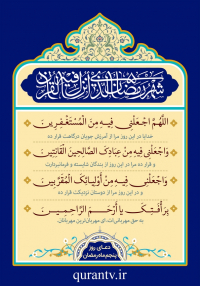 شهر رمضان الذی انزل فیه القرآن
اللَّهُمَّ اجْعَلْنِي فِيهِ مِنَ الْمُسْتَغْفِرِينَ
خدایا در این روز مرا از آمرزش جویان درگاهت قرار ده
وَاجْعَلْنِي فِيهِ مِنْ عِبَادِكَ الصَّالِحِينَ الْقَانِتِينَ
و قرار ده مرا در این روز از بندگان شایسته و فرمانبردارت
وَاجْعَلْنِي فِيهِ مِنْ أَوْلِيَائِكَ الْمُقَرَّبِينَ
و در این روز مرا از دوستان نزدیکت قرار ده
بِرَأْفَتِكَ يَا أَرْحَمَ الرَّاحِمِينَ
به حق مهربانی‌ات، ای مهربان‌ترین مهربانان.
دعـای روز
پنجم ماه رمضان
qurantv.ir